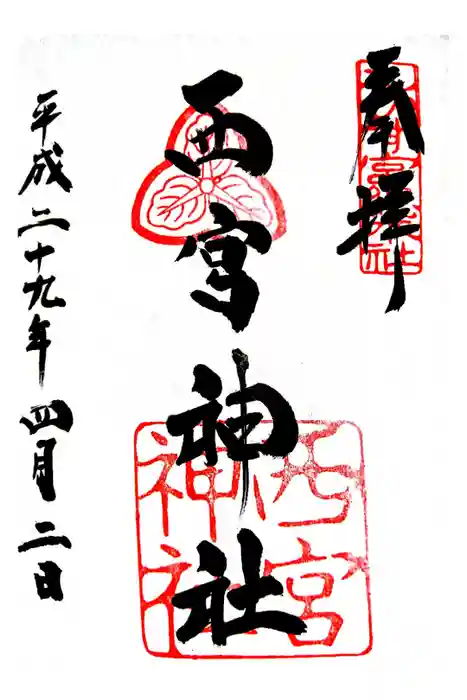 奉拝
西宮神社
平成二十九年四月二日
西宮
神社